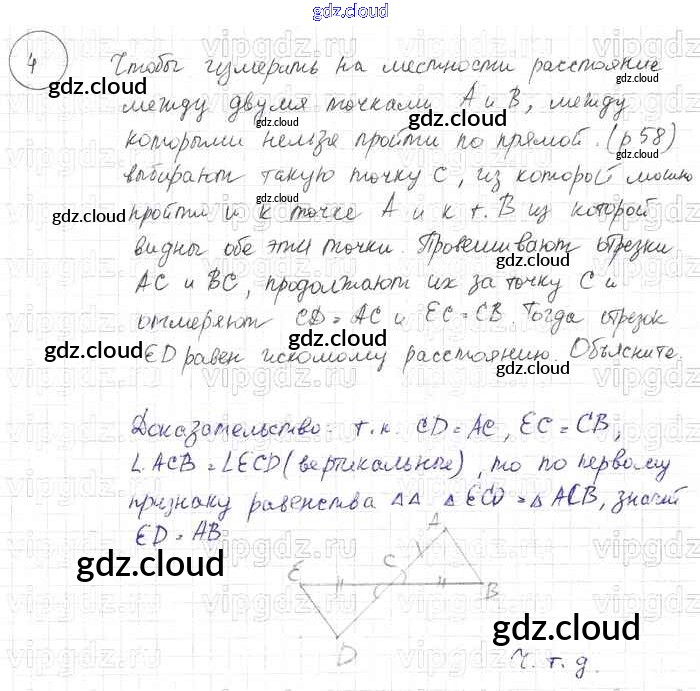 gdz.cloud
4 Чтобы измерить на местности расстояние
между двумя точками А и В, между
которыми нельзя пройти по прямой. (р 58)
выбирают такую точку С, из которой можно
пройти и к точке А и к т. В из которой
видны обе эти точки. Провешивают отрезки
АС и ВС, продолжают их за точку С и
отмеряют CD = AC и EC = CB. Тогда отрезок
ED равен искомому расстоянию. Объясните.
Доказательство. т.к. CD = AC, EC = CB,
∠ ACB = ∠ECD (вертикальные), то по первому
признаку равенства ΔΔ Δ ECD = Δ ACB, значит
ED = AB
A
C
E
B
D
ч. т. д.
gdz.cloud
gdz.cloud
gdz.cloud
gdz.cloud
gdz.cloud
gdz.cloud
gdz.cloud
gdz.cloud
gdz.cloud
gdz.cloud
gdz.cloud
gdz.cloud
gdz.cloud
vipgdz.ru